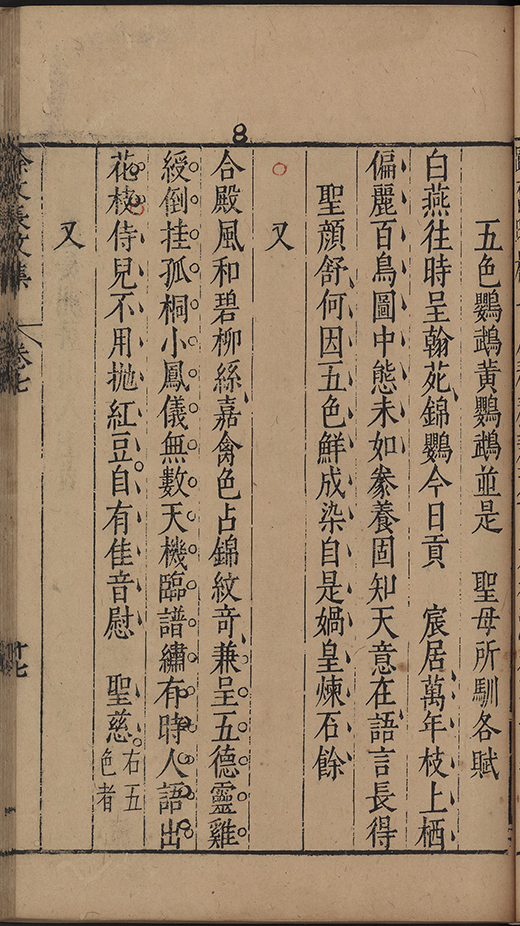 8
五色鸚鵡黃鸚鵡並是　聖母所馴各賦
白燕往時呈翰苑錦鸚今日貢　宸居萬年枝上栖
偏麗百鳥圖中態未如豢養固知天意在語言長得
聖顏舒何因五色鮮成染自是媧皇煉石餘
又
合殿風和碧柳絲嘉禽色占錦紋竒兼呈五德靈雞
綬倒挂孤桐小鳳儀無數天機臨譜繡有時人語出
花枝侍兒不用拋紅豆自有佳音慰　聖慈
右五
色者
又
徐文長文集
卷七
十七